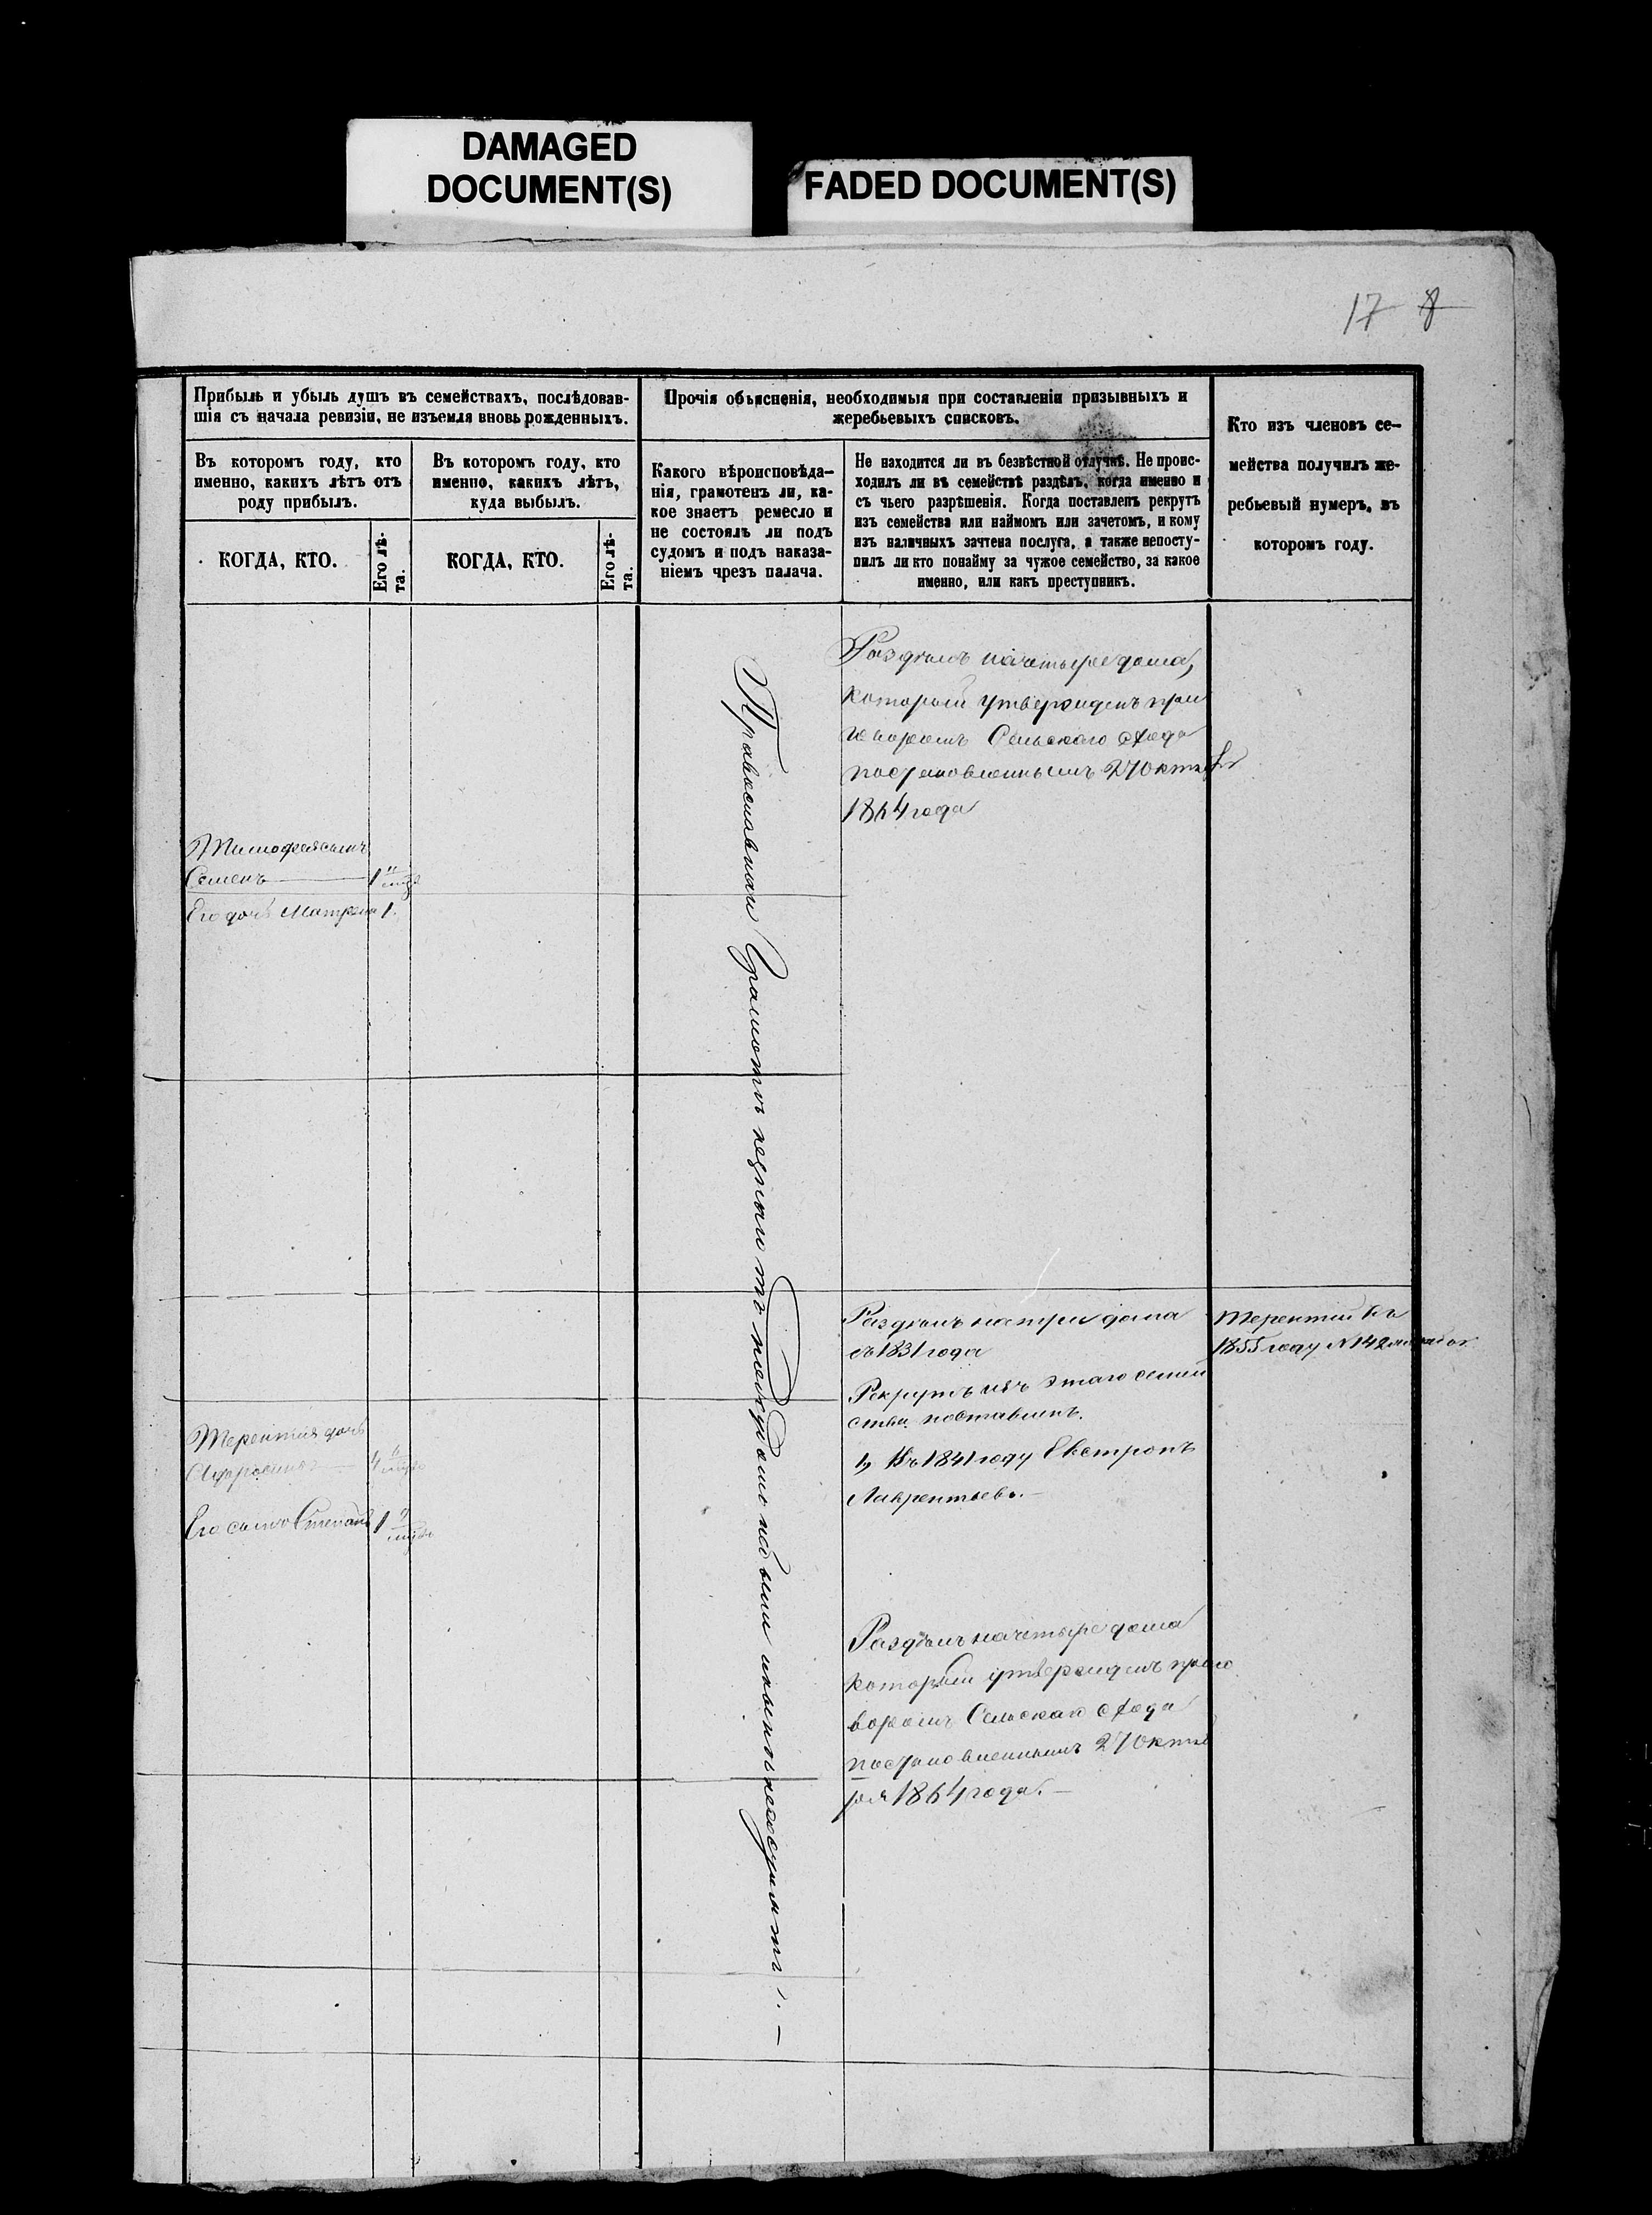 DAMAGED
DOCUMENT(S)
FADED DOCUMENT(S)
17 8
Прибыль и убыль душъ въ семействахъ, послѣдовав-
шія съ начала ревизіи, не изъемля вновь рожденныхъ.
Въ которомъ году, кто
именно, какихъ лѣтъ отъ
роду прибылъ.
Въ которомъ году, кто
именно, какихъ лѣтъ,
куда выбылъ.
КОГДА, КТО.
Его лѣ-
та.
КОГДА, КТО.
Его лѣ-
та.
Прочія объясненія, необходимыя при составленіи призывныхъ и
жеребьевыхъ списковъ.
Какого вѣроисповѣда-
нія, грамотенъ ли, ка-
кое знаетъ ремесло и
не состоялъ ли подъ
судомъ и подъ наказа-
ніемъ чрезъ палача.
Не находится ли въ безвѣстной отлучкѣ. Не проис-
ходилъ ли въ семействѣ раздѣлъ, когда именно и
съ чьего разрѣшенія. Когда поставленъ рекрутъ
изъ семейства или наймомъ или зачетомъ, и кому
изъ наличныхъ зачтена послуга, а также непосту-
пилъ ли кто понайму за чужое семейство, за какое
именно, или какъ преступникъ.
Кто изъ членовъ се-
мейства получилъ же-
ребьевый нумеръ, въ
которомъ году.
Тимофея сынъ
Семенъ 1
Его дочь Матрена 1.
Терентія дочь
4
Его сынъ Степанъ 1
Православныи Грамотѣ
Раздѣлъ на четыре дома,
которыи утвержденъ при
говоромъ Сельскаго схода
постановленнымъ 27 октяб
1864 года
Раздѣлъ на три дома
съ 1831 года
Рекрутъ изъ этаго семей
ства поставленъ.
1, Въ 1841 году Евстропъ
Лаврентьевъ.—
Раздѣлъ на четыре дома
которыи утвержденъ приго
воромъ Сельскаго схода
постановленнымъ 27 октяб
ря 1864 года.—
Терентій въ
1855 году N 142